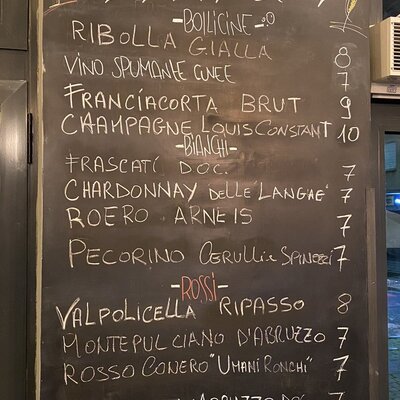 -BOLLICINE-
RIBOLLA GIALLA 8
VINO SPUMANTE CUNEE 7
FRANCIACORTA BRUT 9
CHAMPAGNE LOUIS CONSTANT 10
-BIANCHI-
FRASCATI DOC. 7
CHARDONNAY DELLE LANGHE 7
ROERO ARNEIS 7
PECORINO CERULLI E SPINOZZI 7
-ROSSI-
VALPOLICELLA RIPASSO 8
MONTEPULCIANO D'ABRUZZO 7
ROSSO CONERO "UMANI RONCHI" 7